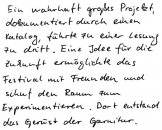 Ein wahrhaft großes Projekt,
dokumentiert durch einen
Katalog, führte zu einer Lesung
zu dritt. Eine Idee für die
Zukunft ermöglichte das
Festival mit Freunden und
schuf den Raum zum
Experimentieren. Dort entstand
das Gerüst der Garnitur.